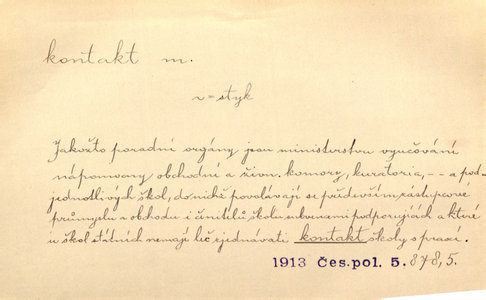 kontakt m.
v = styk
Jakožto poradní orgány jsou ministerstvu vyučování
nápomocny obchodní a živn. komory, kuratoria, -- a pod.
jednotlivých škol, do nichž povolávají se především zástupcové
průmyslu a obchodu i činitelů školu subvencemi podporujících a které
u škol státních nemají leč sjednávati kontakt školy s praxí.
1913 Čes. pol. 5. 878, 5.